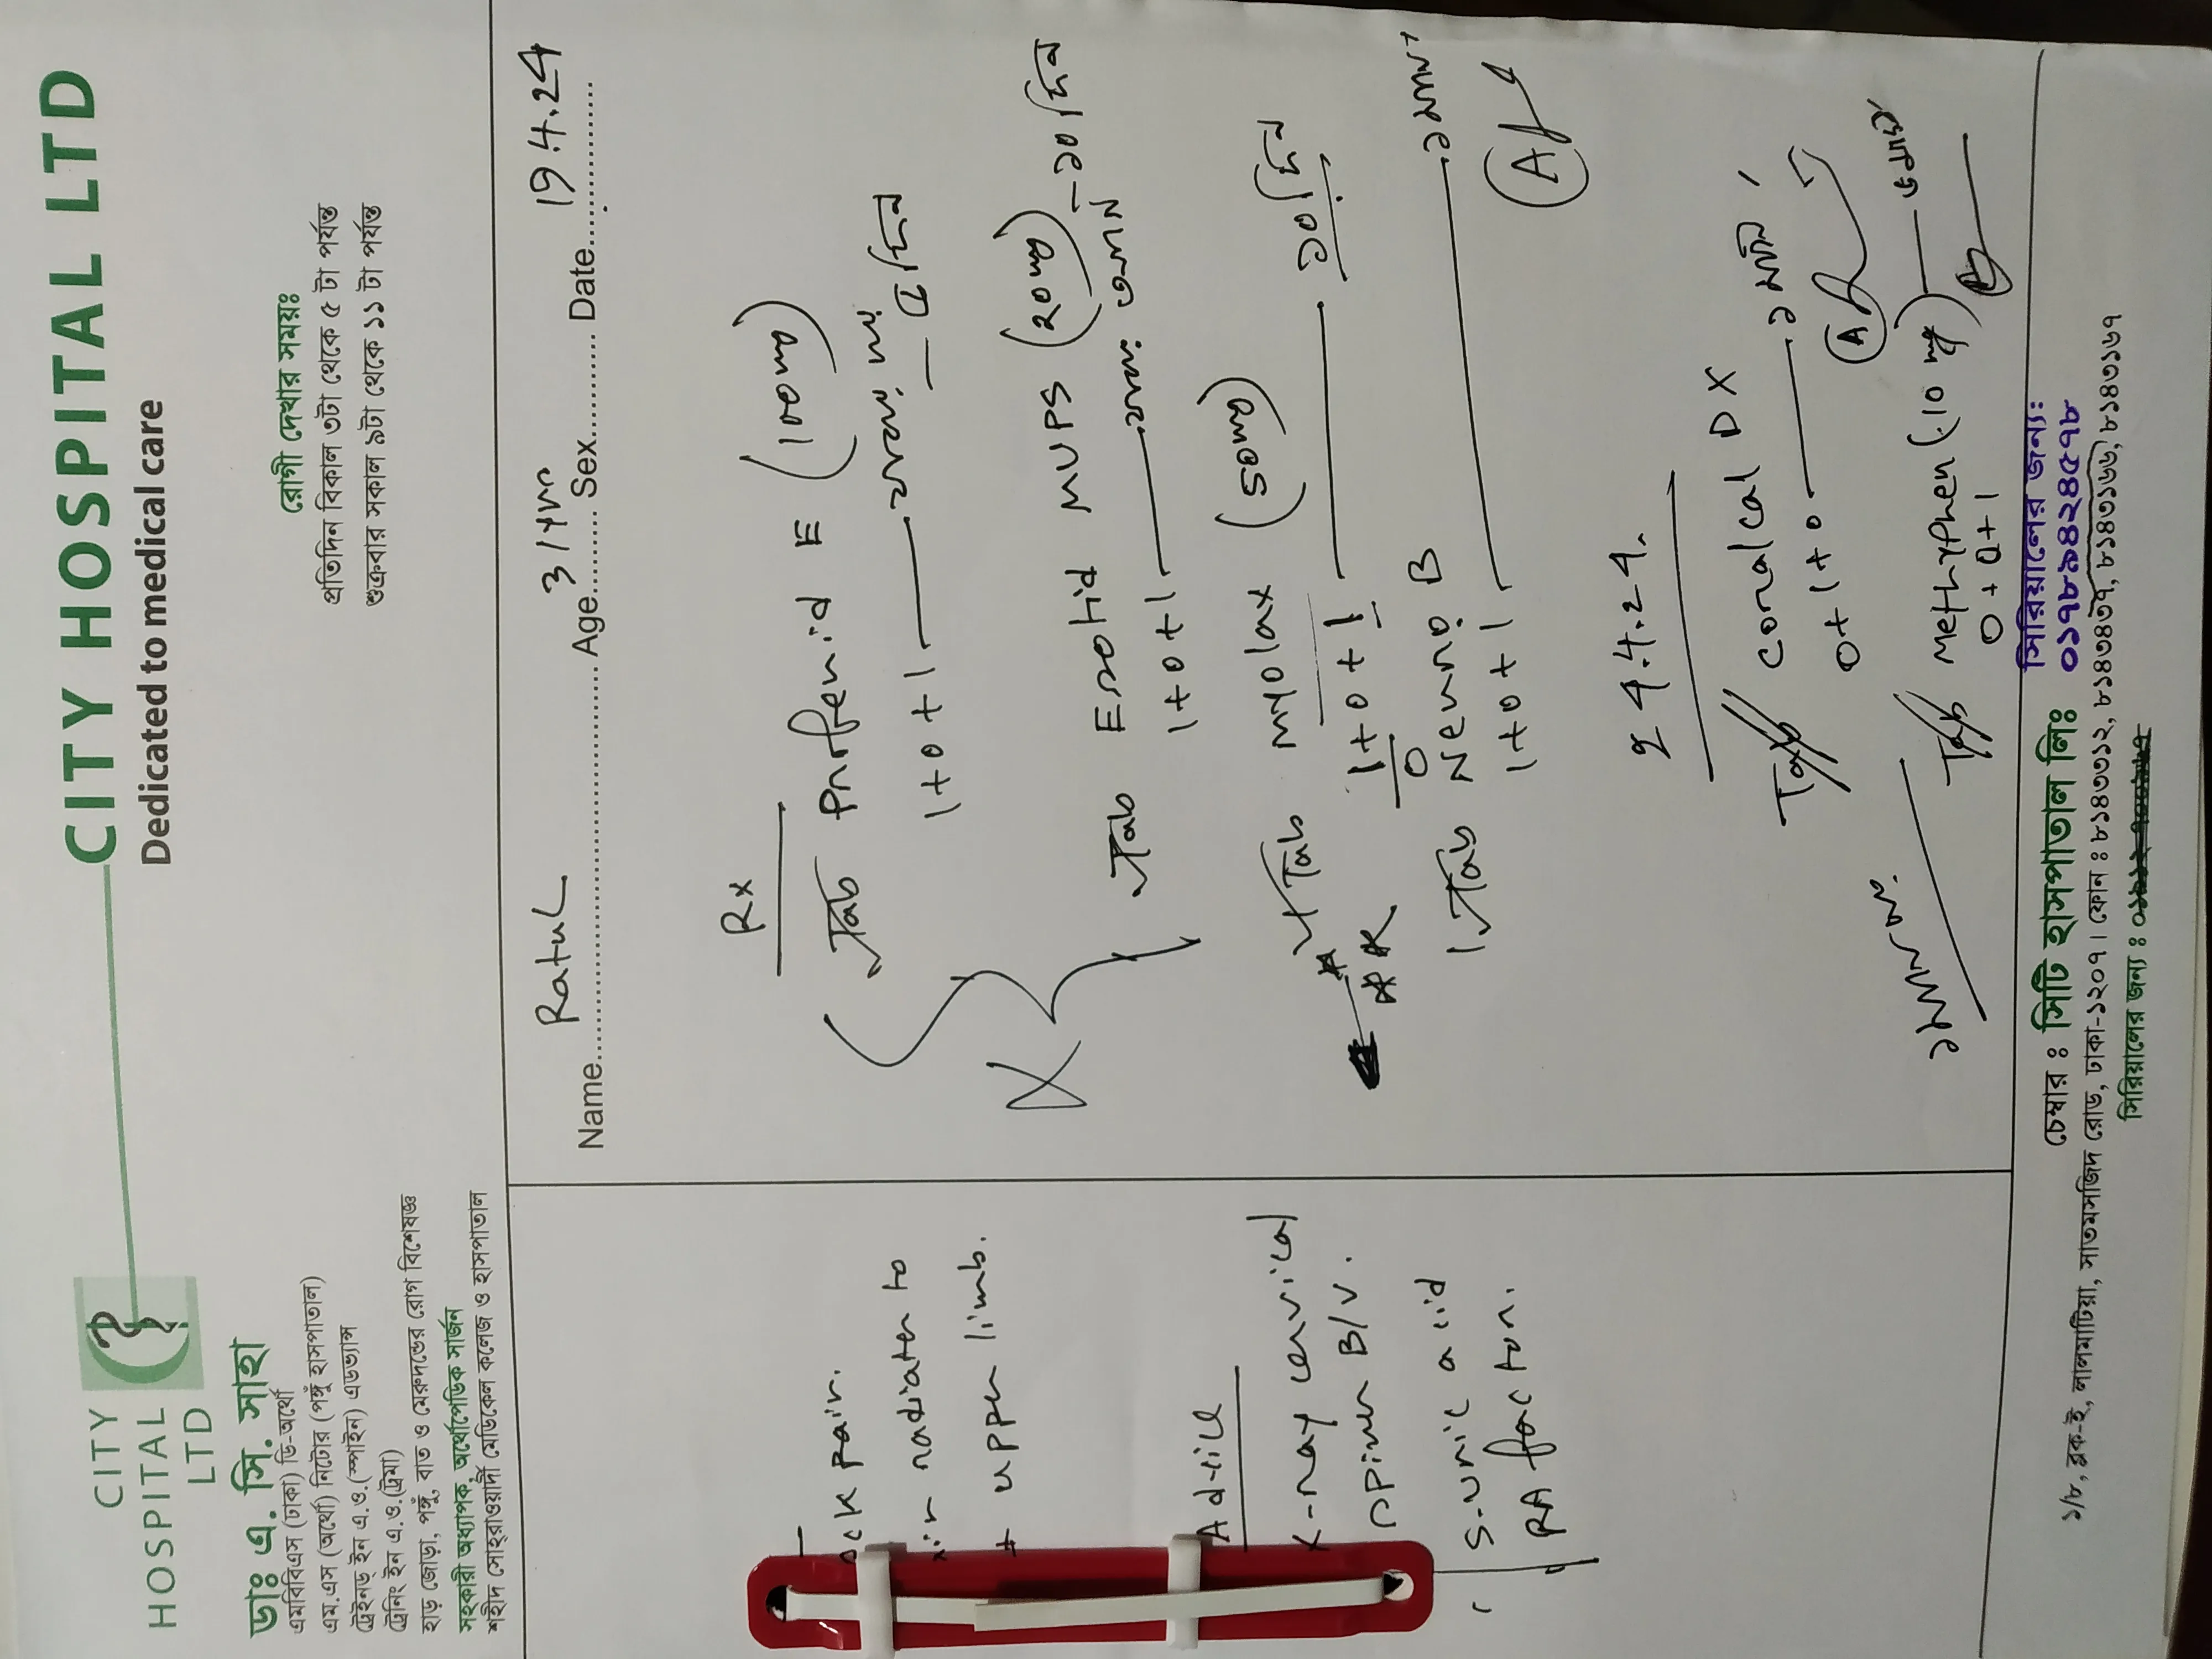 CITY
HOSPITAL
LTD
CITY HOSPITAL LTD
Dedicated to medical care
ডাঃ এ. সি. সাহা
এমবিবিএস (ঢাকা) ডি-অর্থো
এম.এস (অর্থো) নিটোর (পঙ্গু হাসপাতাল)
ট্রেইনড্ ইন এ.ও.(স্পাইন) এডভান্স
ট্রেনিং ইন এ.ও.(ট্রমা)
হাড় জোড়া, পঙ্গু, বাত ও মেরুদন্ডের রোগ বিশেষজ্ঞ
সহকারী অধ্যাপক, অর্থোপেডিক সার্জন
শহীদ সোহ্‌রাওয়ার্দী মেডিকেল কলেজ ও হাসপাতাল
রোগী দেখার সময়ঃ
প্রতিদিন বিকাল ৩টা থেকে ৫ টা পর্যন্ত
শুক্রবার সকাল ৯টা থেকে ১১ টা পর্যন্ত
Name Ratul Age 31 yrs Sex Date 19.4.24
pain.
radiates to
upper limb.
Advice
X-ray cervical
spine B/V.
S. uric acid
RA factor.
Rx
Tab Profenid E (100mg)
1+0+1 ৫ দিন
Tab Esotid MUPS (20mg)
1+0+1 ১০ দিন
Tab Myolax (50mg)
1+0+1 ১০ দিন
Tab Neuro B
1+0+1 ১ মাস
24.4.24.
Tab Coralcal DX
0+1+0 ১ মাস
Tab Methyphen (10 mg)
0+0+1
চেম্বার : সিটি হাসপাতাল লিঃ
সিরিয়ালের জন্য:
০১৭৮৯৪২৪৫৭৮
১/৮, ব্লক-ই, লালমাটিয়া, সাতমসজিদ রোড, ঢাকা-১২০৭। ফোন : ৮১৪৩৩১২, ৮১৪৩৪৩৭, ৮১৪৩১৬৬, ৮১৪৩১৬৭
সিরিয়ালের জন্য :